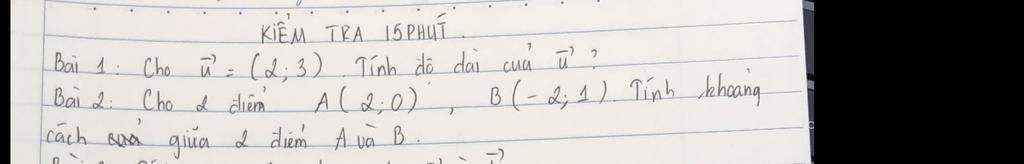 KIỂM TRA 15 PHÚT.
Bài 1: Cho u⃗ = (2;3). Tính độ dài của u⃗ ?
Bài 2: Cho 2 điểm A(2;0), B(-2;1). Tính khoảng
cách giữa 2 điểm A và B.